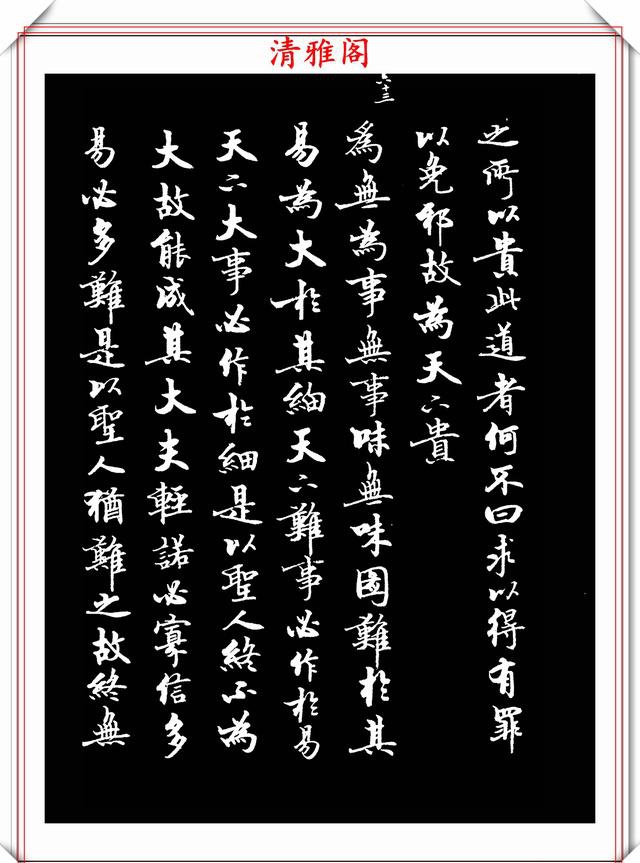 清雅阁
之所以貴此道者何不曰求以得有罪
以免邪故為天下貴
六十三
為無為事無事味無味圖難於其
易為大於其細天下難事必作於易
天下大事必作於細是以聖人終不為
大故能成其大夫輕諾必寡信多
易必多難是以聖人猶難之故終無